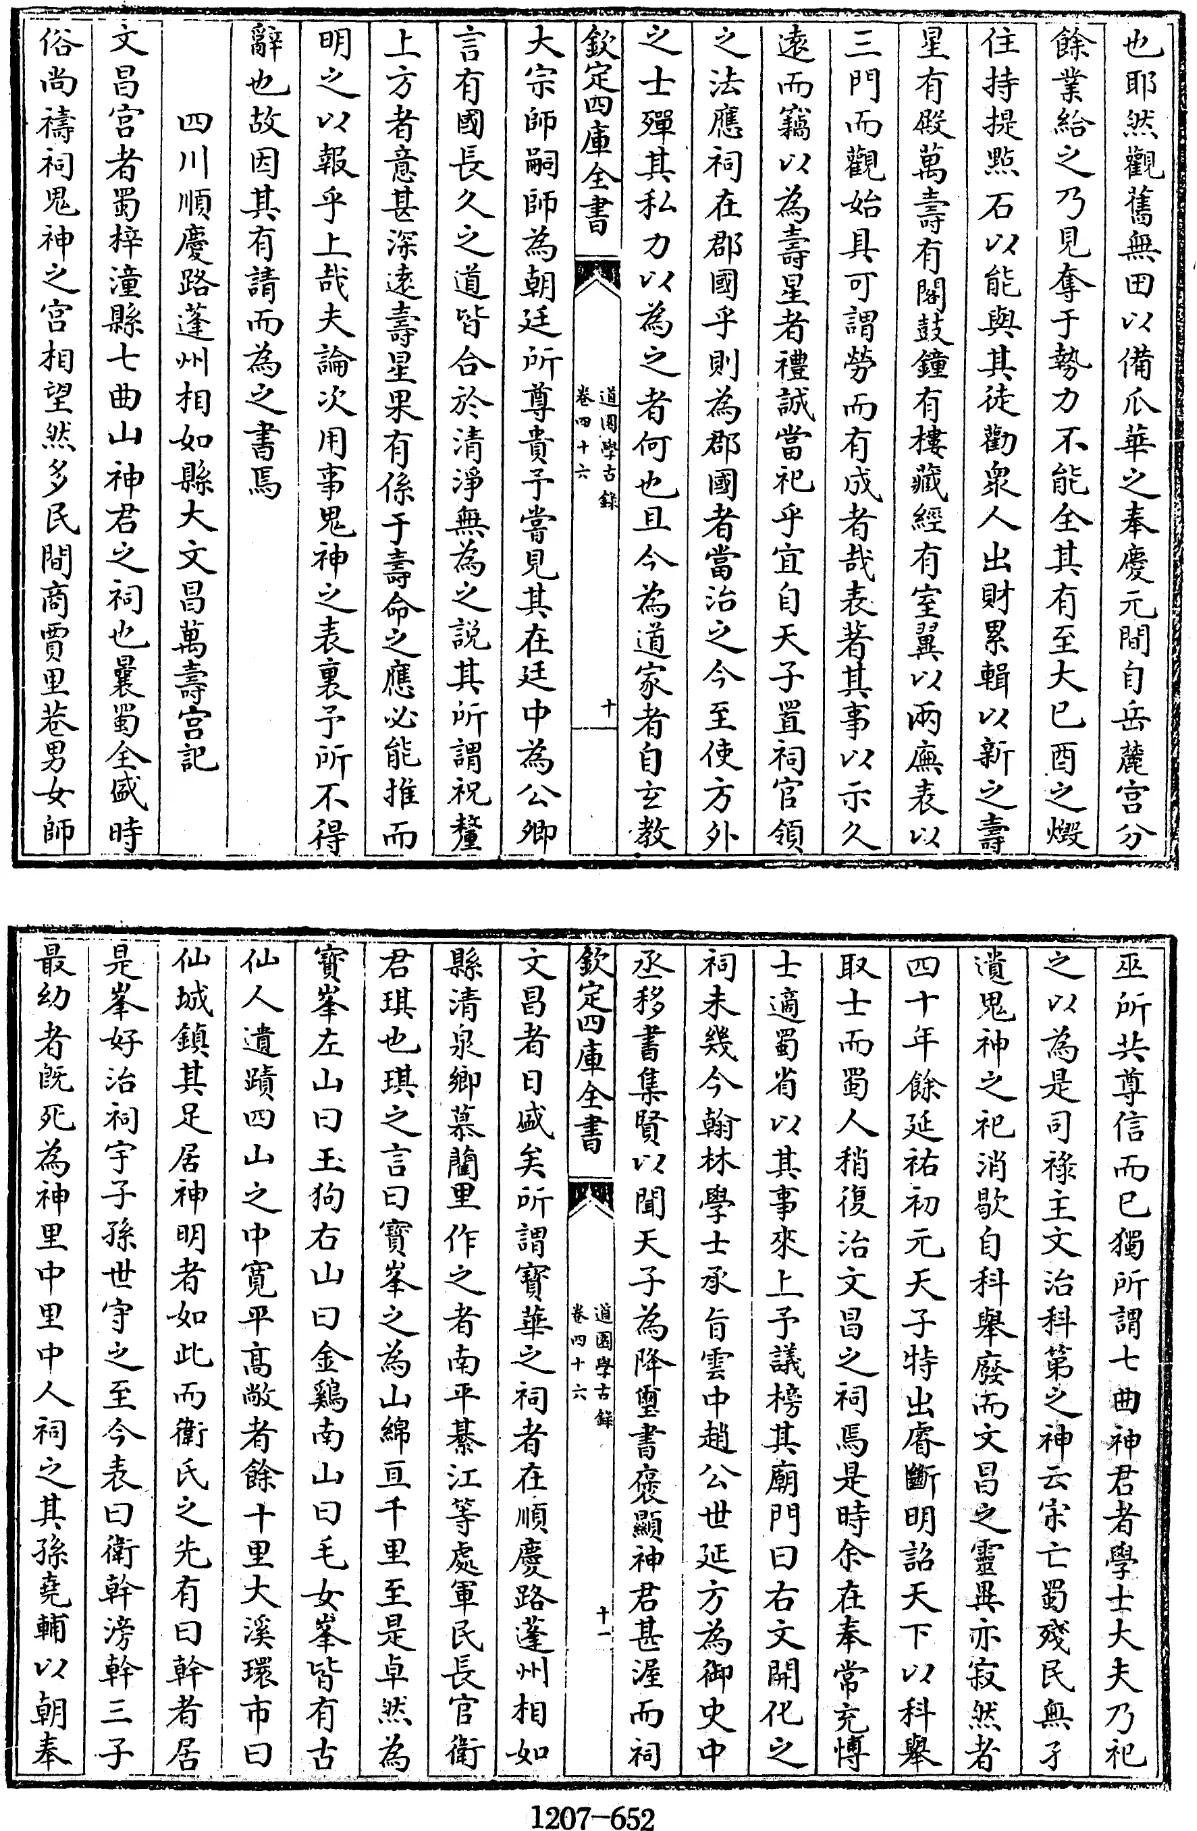 也耶然觀舊無田以備瓜華之奉慶元間自岳麓宮分
餘業給之乃見奪于勢力不能全其有至大己酉之燬
住持提點石以能與其徒勸衆人出財累輯以新之壽
星有殿萬壽有閣鼓鐘有樓藏經有室翼以兩廡表以
三門而觀始具可謂勞而有成者哉表著其事以示久
遠而竊以為壽星者禮誠當祀乎宜自天子置祠官領
之法應祠在郡國乎則為郡國者當治之今至使方外
之士殫其私力以為之者何也且今為道家者自玄教
欽定四庫全書
道園學古錄
卷四十六
十
大宗師嗣師為朝廷所尊貴予嘗見其在廷中為公卿
言有國長久之道皆合於清淨無為之說其所謂祝釐
上方者意甚深遠壽星果有係于壽命之應必能推而
明之以報乎上哉夫論次用事鬼神之表裏予所不得
辭也故因其有請而為之書焉
四川順慶路蓬州相如縣大文昌萬壽宮記
文昌宮者蜀梓潼縣七曲山神君之祠也曩蜀全盛時
俗尚禱祠鬼神之宮相望然多民間商賈里巷男女師
巫所共尊信而已獨所謂七曲神君者學士大夫乃祀
之以為是司祿主文治科第之神云宋亡蜀殘民無孑
遺鬼神之祀消歇自科舉廢而文昌之靈異亦寂然者
四十年餘延祐初元天子特出睿斷明詔天下以科舉
取士而蜀人稍復治文昌之祠焉是時余在奉常充博
士適蜀省以其事來上予議榜其廟門曰右文開化之
祠未幾今翰林學士承旨雲中趙公世延方為御史中
丞移書集賢以聞天子為降璽書褒顯神君甚渥而祠
欽定四庫全書
道園學古錄
卷四十六
十一
文昌者日盛矣所謂寶華之祠者在順慶路蓬州相如
縣清泉鄉慕藺里作之者南平綦江等處軍民長官衛
君琪也琪之言曰寶峯之為山綿亘千里至是卓然為
寶峯左山曰玉狗右山曰金鷄南山曰毛女峯皆有古
仙人遺蹟四山之中寬平高敞者餘十里大溪環市曰
仙城鎮其足居神明者如此而衛氏之先有曰幹者居
是峯好治祠宇子孫世守之至今表曰衛幹滂幹三子
最幼者旣死為神里中里中人祠之其孫堯輔以朝奉
1207-652